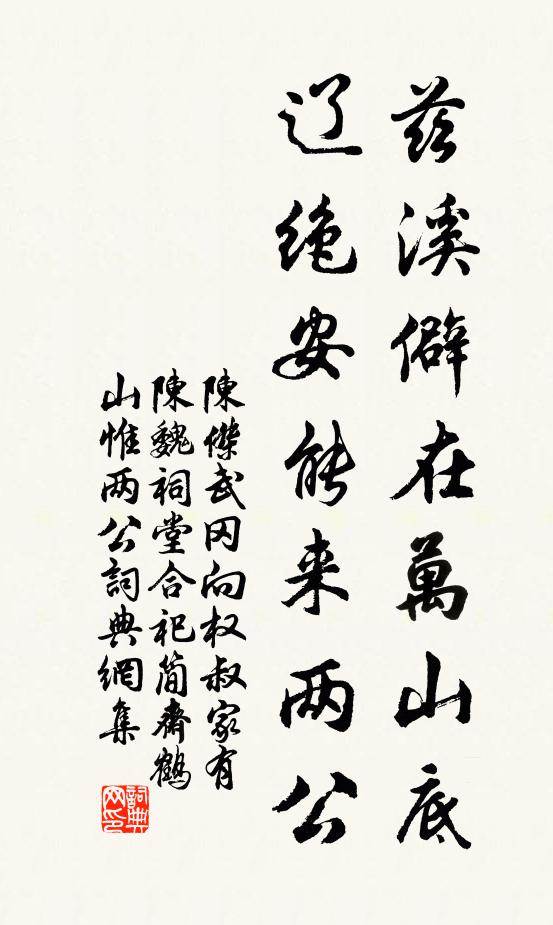 兹溪僻在萬山底
辽绝安能来两公
陳傑武冈向权叔家有
陳魏祠堂合祀简齋鶴
山惟两公詞典網集
詞典网印